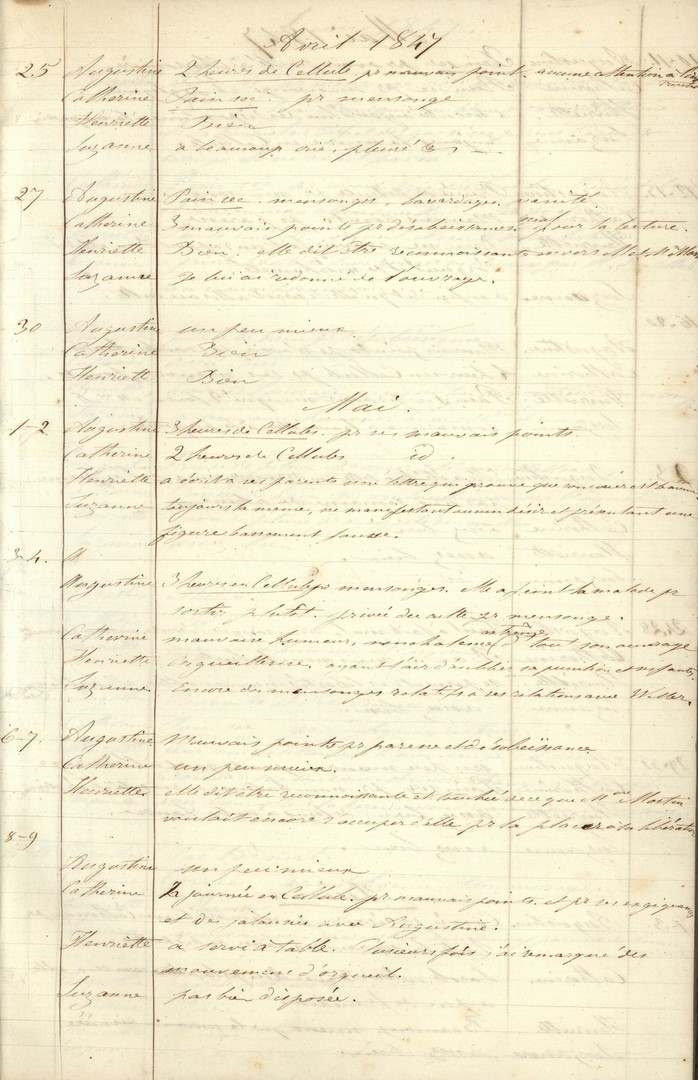 Avril 1847
25 Augustine 2 heures de Cellule pr mauvais point. aucune attention à
Catherine Pain sec pr mensonge
Henriette Bien
Suzanne a beaucoup crié, pleuré &
27 Augustine Pain sec. mensonges, bavardages, vanité.
Catherine 3 mauvais points pr désobéissances mal pour la lecture.
Henriette Bien. elle dit être reconnaissante envers M et Me
Suzanne Je lui ai redonné de l'ouvrage.
30 Augustine un peu mieux
Catherine Bien
Henriette Bien
Mai.
1-2 Augustine 3 heures de Cellules. pr ses mauvais points.
Catherine 2 heures de Cellules id.
Henriette a écrit à ses parents une lettre qui prouve que son cœur est
Suzanne toujours la même, ne manifestant aucun désir et présentant une
figure bassement fausse.
3-4.
Augustine 3 heures en Cellule pr mensonges. Elle a feint la malade pr
sortir plutôt. privée du culte pr mensonge.
Catherine mauvaise humeur, nonchalence, tout son ouvrage
Henriette Orgueilleuse, ayant l'air d'oublier sa punition et ses fautes.
Suzanne Encore des mensonges relatifs à ses relations avec
6-7. Augustine Mauvais points pr paresse et désobéissance
Catherine un peu mieux.
Henriette elle dit être reconnaissante et touchée de ce que Mme Martin
voulait encore s'occuper d'elle pr la placer à sa
8-9
Augustine un peu mieux
Catherine journée en Cellule, pr mauvais points, et pr ses exigeances
et des jalousies avec Augustine.
Henriette a servi à table. Plusieurs fois j'ai remarqué des
mouvement d'orgueil.
Suzanne pas bien disposée.